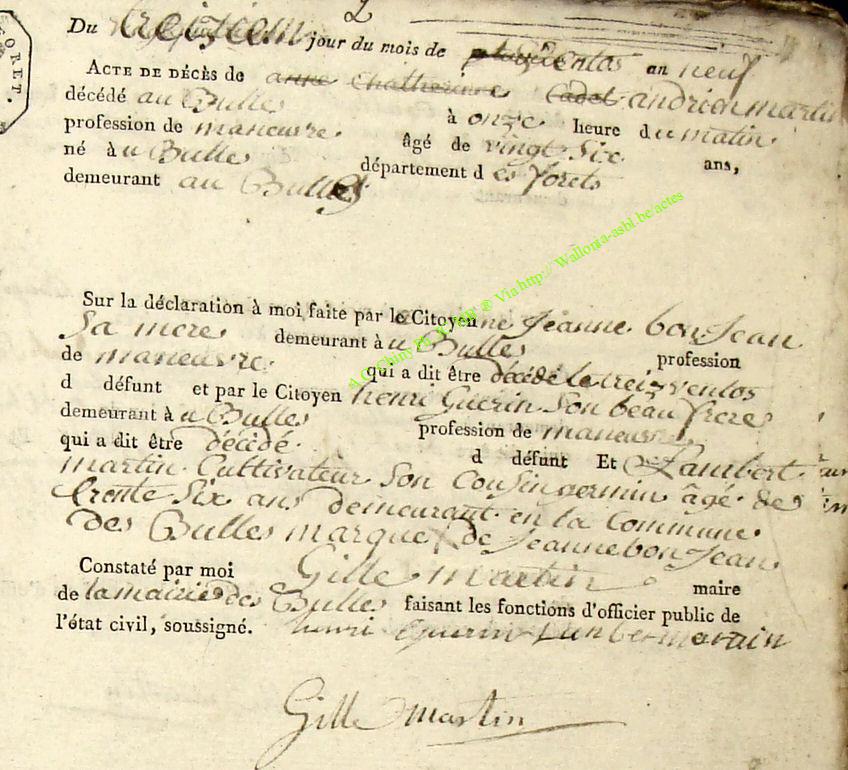 2
Du troisieme jour du mois de ventos an neuf
ACTE DE DÉCÈS de anne Chatherine Cadet andrien martin
décédé au Bulles à onze heure du matin
profession de maneuvre âgé de vingt Six ans,
né à u Bulles département d es forets
demeurant au Bulles
Sur la déclaration à moi faite par le Citoyenne Jeanne bon Jean
Sa mere demeurant à u Bulles profession
de maneuvre qui a dit être décédé le trois ventos
d défunt et par le Citoyen henri Guerin Son beau frere
demeurant à u Bulles profession de maneuvre
qui a dit être décédé d défunt Et Lambert
martin Cultivateur Son Cousin germin âgé de
trente Six ans demeurant en la Commune
des Bulles marque X de Jeanne bon Jean
Constaté par moi Gille martin maire
de la mairie des Bulles faisant les fonctions d'officier public de
l'état civil, soussigné. henri Guerin Lambert martin
Gille martin
FORET.
A.G. Cluny ® Via http:// Wallonia-asbl.be/actes